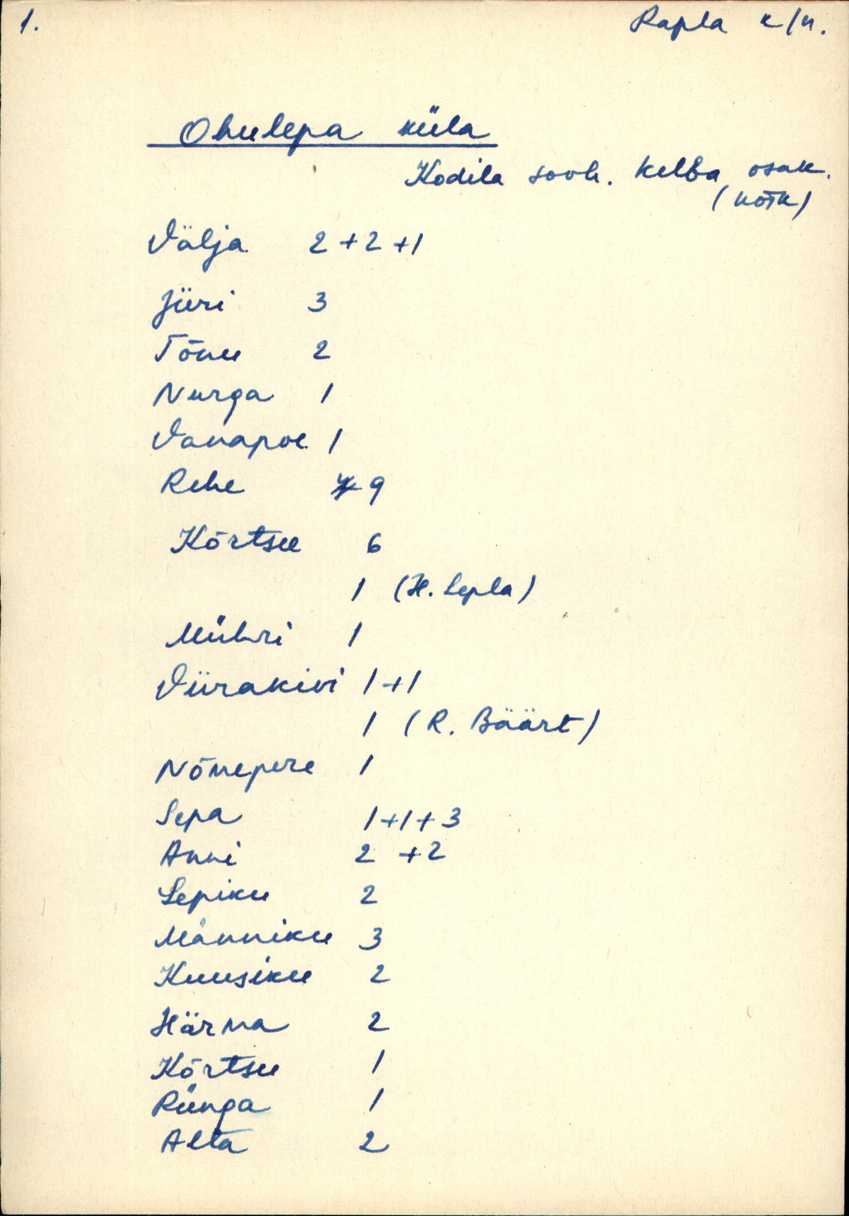 1.
Rapla k/n.
Ohulepa küla
Kodila sovh. Kelba osak.
(Kõik)
Välja 2+2+1
Jüri 3
Tõnu 2
Nurga 1
Vanapoe 1
Rehe 9
Kõrtsu 6
1 (H. Lepla)
Mühri 1
Viirakivi 1+1
1 (R. Bäärt)
Nõmepere 1
Sepa 1+1+3
Anni 2 +2
Lepiku 2
Männiku 3
Kuusiku 2
Härma 2
Kõrtsu 1
Rünga 1
Alta 2